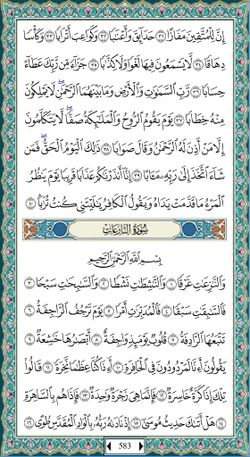 إِنَّ لِلْمُتَّقِينَ مَفَازًا ٣١ حَدَائِقَ وَأَعْنَابًا ٣٢ وَكَوَاعِبَ أَتْرَابًا ٣٣ وَكَأْسًا
دِهَاقًا ٣٤ لَّا يَسْمَعُونَ فِيهَا لَغْوًا وَلَا كِذَّابًا ٣٥ جَزَاءً مِّن رَّبِّكَ عَطَاءً
حِسَابًا ٣٦ رَّبِّ السَّمَاوَاتِ وَالْأَرْضِ وَمَا بَيْنَهُمَا الرَّحْمَٰنِ لَا يَمْلِكُونَ
مِنْهُ خِطَابًا ٣٧ يَوْمَ يَقُومُ الرُّوحُ وَالْمَلَائِكَةُ صَفًّا لَّا يَتَكَلَّمُونَ
إِلَّا مَنْ أَذِنَ لَهُ الرَّحْمَٰنُ وَقَالَ صَوَابًا ٣٨ ذَٰلِكَ الْيَوْمُ الْحَقُّ فَمَن
شَاءَ اتَّخَذَ إِلَىٰ رَبِّهِ مَآبًا ٣٩ إِنَّا أَنذَرْنَاكُمْ عَذَابًا قَرِيبًا يَوْمَ يَنظُرُ
الْمَرْءُ مَا قَدَّمَتْ يَدَاهُ وَيَقُولُ الْكَافِرُ يَا لَيْتَنِي كُنتُ تُرَابًا ٤٠
سُورَةُ النَّازِعَاتِ
بِسْمِ اللَّهِ الرَّحْمَٰنِ الرَّحِيمِ
وَالنَّازِعَاتِ غَرْقًا ١ وَالنَّاشِطَاتِ نَشْطًا ٢ وَالسَّابِحَاتِ سَبْحًا ٣
فَالسَّابِقَاتِ سَبْقًا ٤ فَالْمُدَبِّرَاتِ أَمْرًا ٥ يَوْمَ تَرْجُفُ الرَّاجِفَةُ ٦
تَتْبَعُهَا الرَّادِفَةُ ٧ قُلُوبٌ يَوْمَئِذٍ وَاجِفَةٌ ٨ أَبْصَارُهَا خَاشِعَةٌ ٩
يَقُولُونَ أَإِنَّا لَمَرْدُودُونَ فِي الْحَافِرَةِ ١٠ أَإِذَا كُنَّا عِظَامًا نَّخِرَةً ١١ قَالُوا
تِلْكَ إِذًا كَرَّةٌ خَاسِرَةٌ ١٢ فَإِنَّمَا هِيَ زَجْرَةٌ وَاحِدَةٌ ١٣ فَإِذَا هُم بِالسَّاهِرَةِ
١٤ هَلْ أَتَاكَ حَدِيثُ مُوسَىٰ ١٥ إِذْ نَادَاهُ رَبُّهُ بِالْوَادِ الْمُقَدَّسِ طُوًى ١٦
583